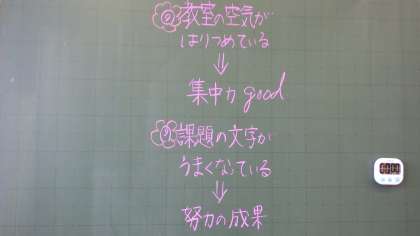 ②教室の空気が
はりつめている
⇓
集中力good
③課題の文字が
うまくなっている
⇓
努力の成果